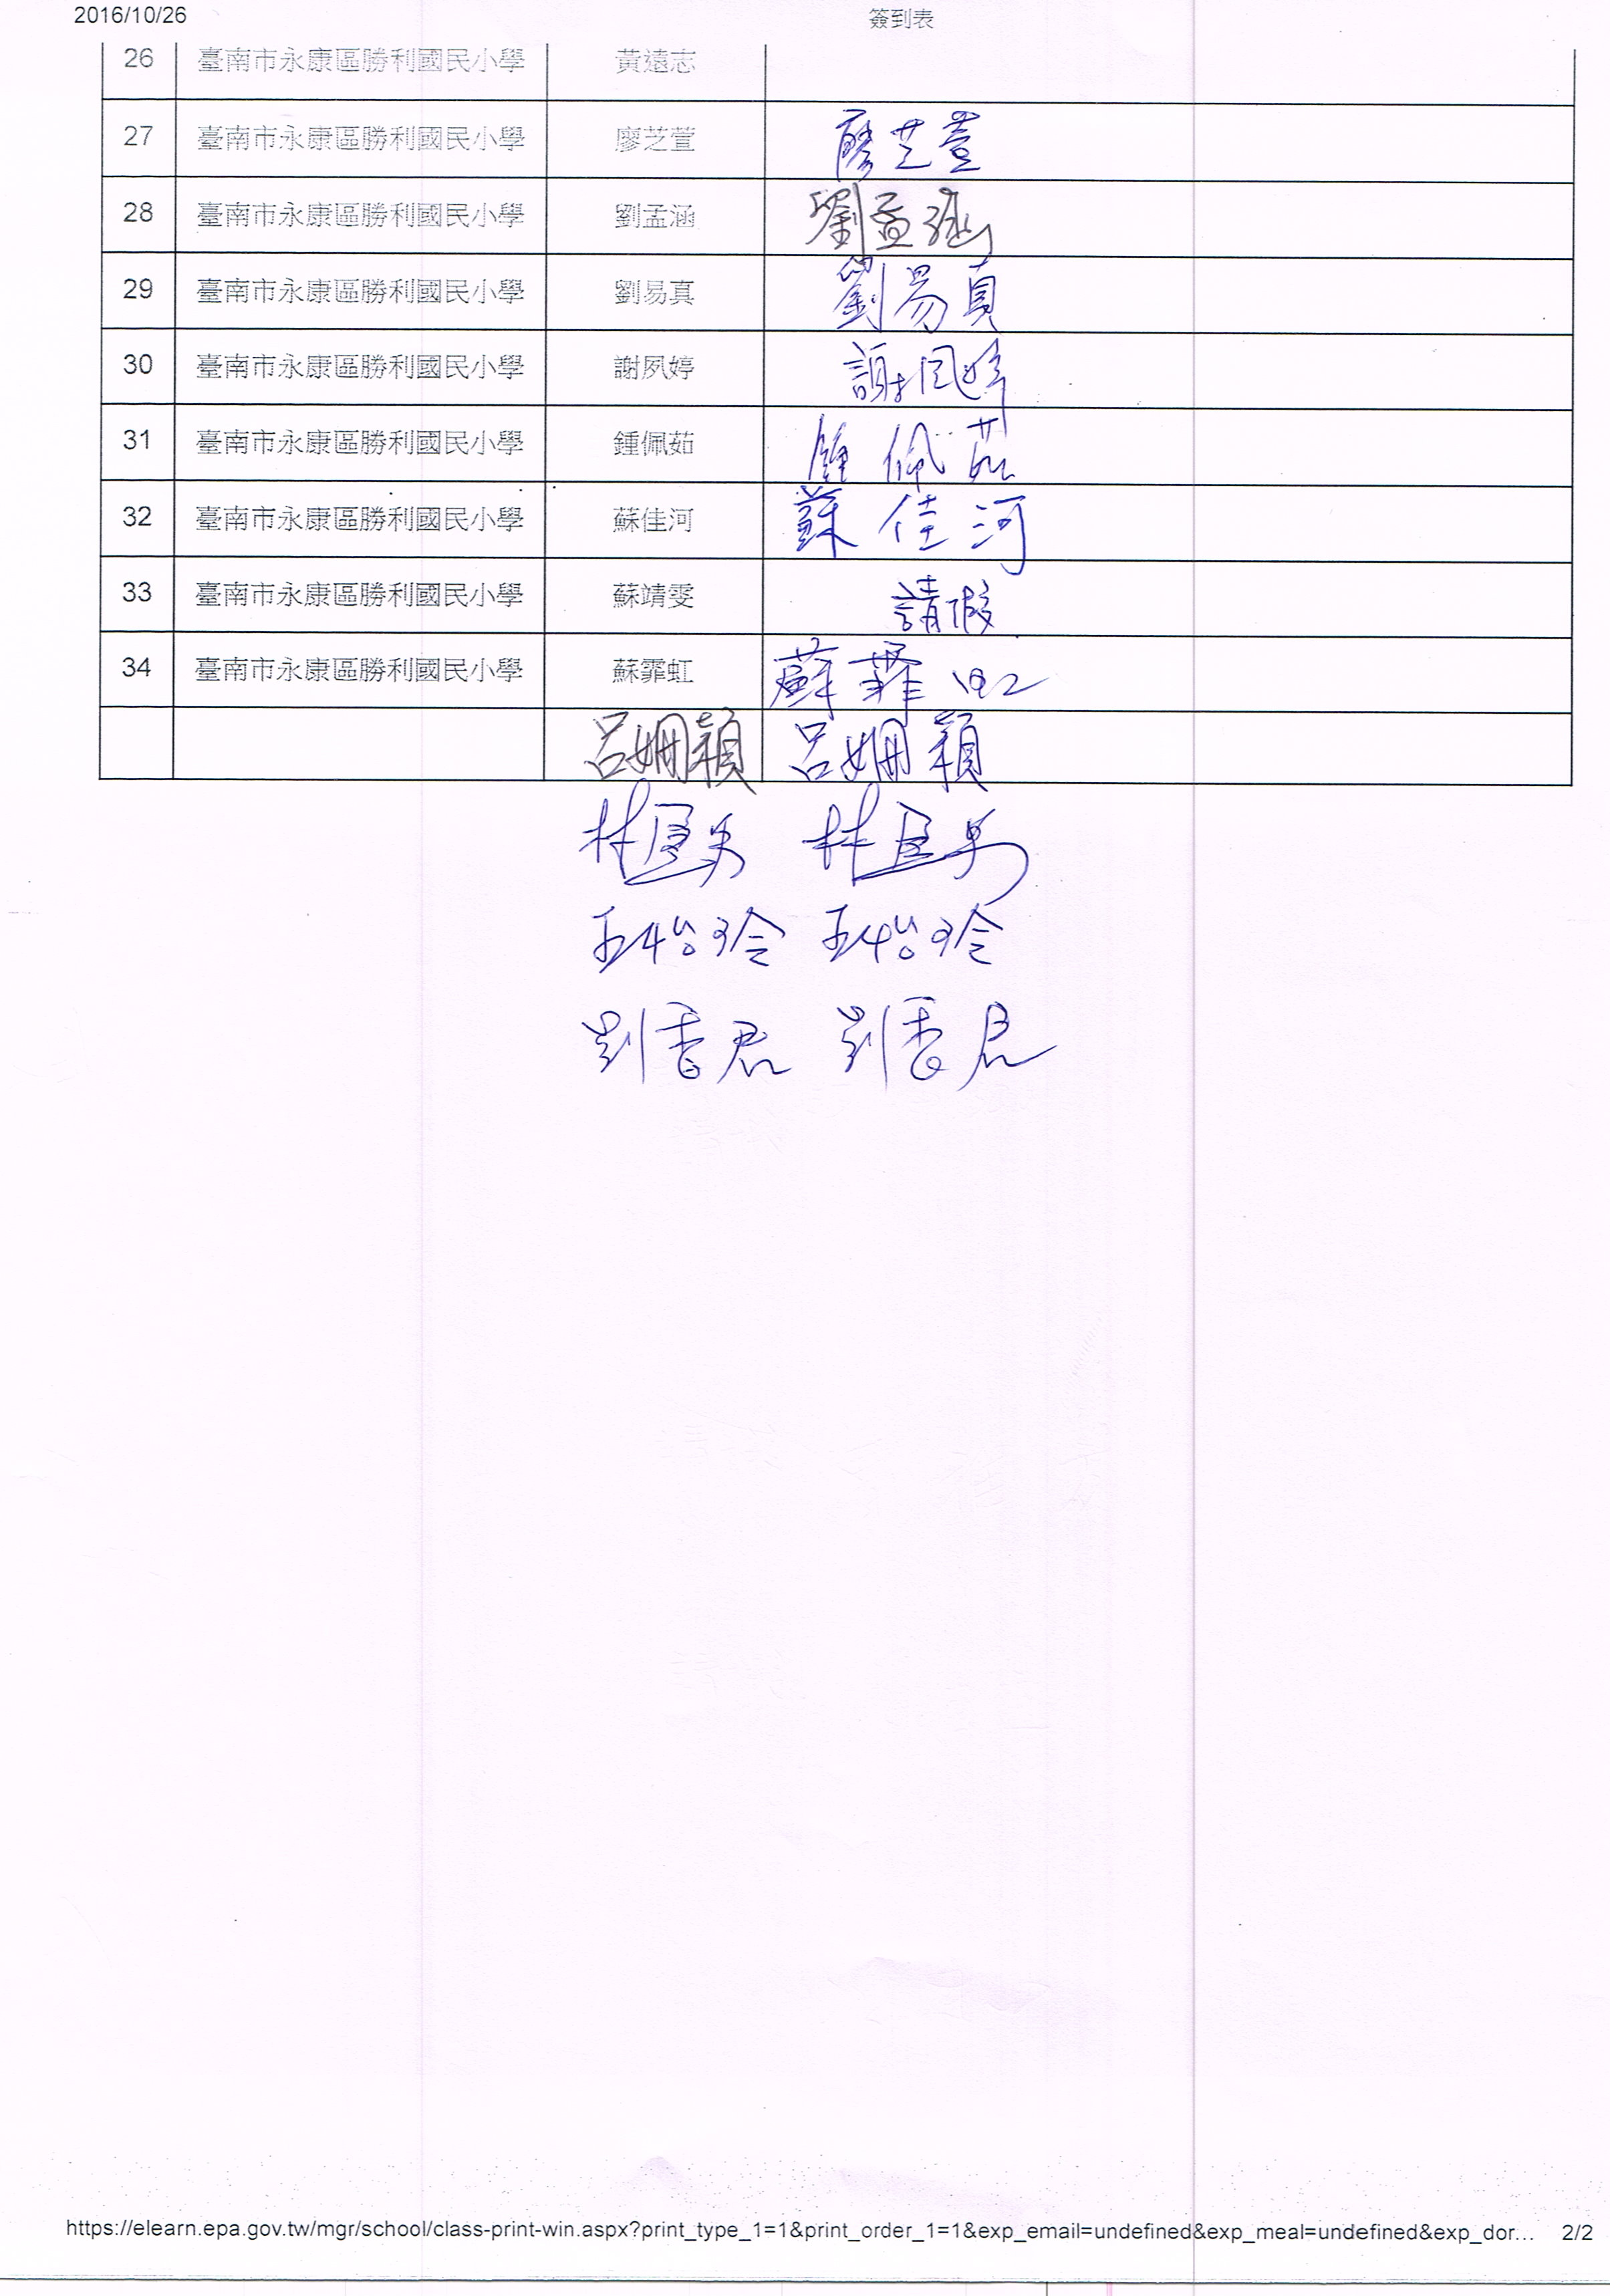 2016/10/26 簽到表
26 臺南市永康區勝利國民小學 黃遠志
27 臺南市永康區勝利國民小學 廖芝萱 廖芝萱
28 臺南市永康區勝利國民小學 劉孟涵 劉孟涵
29 臺南市永康區勝利國民小學 劉易真 劉易真
30 臺南市永康區勝利國民小學 謝夙婷 謝夙婷
31 臺南市永康區勝利國民小學 鍾佩茹 鍾佩茹
32 臺南市永康區勝利國民小學 蘇佳河 蘇佳河
33 臺南市永康區勝利國民小學 蘇靖雯 請假
34 臺南市永康區勝利國民小學 蘇霏虹 蘇霏虹
呂姍穎 呂姍穎
林 林
王怡玲 王怡玲
劉香君 劉香君
https://elearn.epa.gov.tw/mgr/school/class-print-win.aspx?print_type_1=1&print_order_1=1&exp_email=undefined&exp_meal=undefined&exp_dor... 2/2